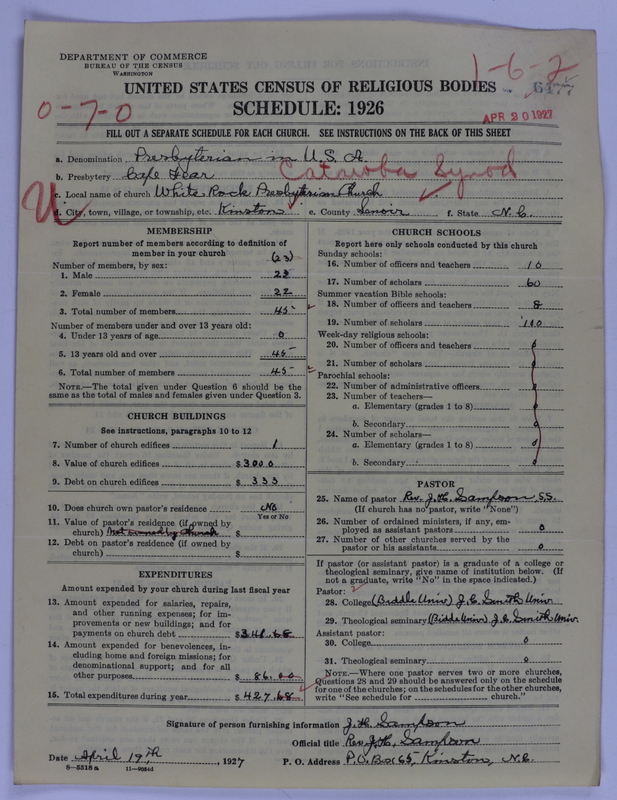 DEPARTMENT OF COMMERCE
BUREAU OF THE CENSUS
WASHINGTON
1-6-2
UNITED STATES CENSUS OF RELIGIOUS BODIES
6477
SCHEDULE: 1926
0-7-0
APR 20 1927
FILL OUT A SEPARATE SCHEDULE FOR EACH CHURCH. SEE INSTRUCTIONS ON THE BACK OF THIS SHEET
a. Denomination Presbyterian in U.S.A.
b. Presbytery Cape Fear Catawba Synod
c. Local name of church White Rock Presbyterian Church
d. City, town, village, or township, etc. Kinston e. County Lenoir f. State N.C.
MEMBERSHIP
Report number of members according to definition of member in your church
(23)
Number of members, by sex:
1. Male 23
2. Female 22
3. Total number of members 45
Number of members under and over 13 years old:
4. Under 13 years of age 0
5. 13 years old and over 45
6. Total number of members 45
NOTE.—The total given under Question 6 should be the same as the total of males and females given under Question 3.
CHURCH BUILDINGS
See instructions, paragraphs 10 to 12
7. Number of church edifices 1
8. Value of church edifices $3000
9. Debt on church edifices $333
10. Does church own pastor's residence No
Yes or No
11. Value of pastor's residence (if owned by church) Not owned by Church $
12. Debt on pastor's residence (if owned by church) $
EXPENDITURES
Amount expended by your church during last fiscal year
13. Amount expended for salaries, repairs, and other running expenses; for improvements or new buildings; and for payments on church debt $341.68
14. Amount expended for benevolences, including home and foreign missions; for denominational support; and for all other purposes $86.00
15. Total expenditures during year $427.68
CHURCH SCHOOLS
Report here only schools conducted by this church
Sunday schools:
16. Number of officers and teachers 10
17. Number of scholars 60
Summer vacation Bible schools:
18. Number of officers and teachers 8
19. Number of scholars 100
Week-day religious schools:
20. Number of officers and teachers 0
21. Number of scholars 0
Parochial schools:
22. Number of administrative officers 0
23. Number of teachers—
a. Elementary (grades 1 to 8) 0
b. Secondary 0
24. Number of scholars—
a. Elementary (grades 1 to 8) 0
b. Secondary 0
PASTOR
25. Name of pastor Rev. J.H. Sampson S.S.
(If church has no pastor, write "None")
26. Number of ordained ministers, if any, employed as assistant pastors 0
27. Number of other churches served by the pastor or his assistants 0
If pastor (or assistant pastor) is a graduate of a college or theological seminary, give name of institution below. (If not a graduate, write "No" in the space indicated.)
Pastor:
28. College (Biddle Univ) J.C. Smith Univ.
29. Theological seminary (Biddle Univ) J.C. Smith Univ.
Assistant pastor:
30. College 0
31. Theological seminary 0
NOTE.—Where one pastor serves two or more churches, Questions 28 and 29 should be answered only on the schedule for one of the churches; on the schedules for the other churches, write "See schedule for church."
Signature of person furnishing information J.H. Sampson
Official title Rev. J.H. Sampson
Date April 19th, 1927 P. O. Address P.O. Box 65, Kinston, N.C.
8—5518a 11—9084d